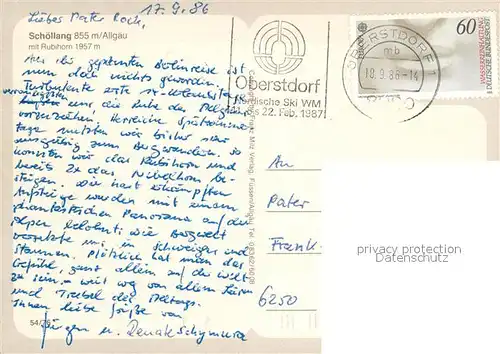 17.9.86
Liebes Pater Koch,
Schöllang 855 m/Allgäu
mit Rubihorn 1957 m
Aus der geplanten Berlinreise ist
nun doch nichts geworden.
Turbulente
uns die Ruhe der
vorzuziehen. Herrliche Spätsommer-
tage nutzten wir bisher
zum Bergwandern. So
konnten wir das Rubihorn und
bereits 2x das Nebelhorn be-
steigen. Die hart erkämpften
Aufstiege wurden mit einem
phantastischen Panorama auf die
Alpen belohnt. Die Bergwelt
versetzte uns in Schweigen und
Staunen. Plötzlich hat man das
Gefühl, ganz allein auf der Welt
zu sein - weit weg von allem Lärm
und Trubel des Alltags.
Ihnen liebe Grüße von
Jürgen u. Renate Schymura
54/78
Oberstdorf
Nordische Ski WM
bis 22. Feb. 1987
OBERSTDORF 1
mb
18.9.86-14
60
DEUTSCHE BUNDESPOST
An
Pater
Frank-
6250
privacy protection
Datenschutz